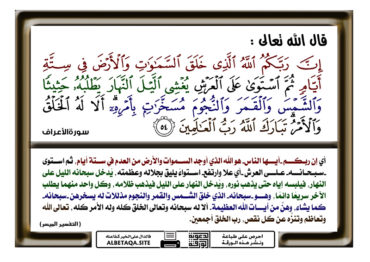 قال الله تعالى :
إِنَّ رَبَّكُمُ اللَّهُ الَّذِى خَلَقَ السَّمَٰوَٰتِ وَالْأَرْضَ فِى سِتَّةِ
أَيَّامٍ ثُمَّ اسْتَوَىٰ عَلَى الْعَرْشِ يُغْشِى الَّيْلَ النَّهَارَ يَطْلُبُهُۥ حَثِيثًا
وَالشَّمْسَ وَالْقَمَرَ وَالنُّجُومَ مُسَخَّرَٰتٍۭ بِأَمْرِهِۦٓ ۗ أَلَا لَهُ الْخَلْقُ
وَالْأَمْرُ ۗ تَبَارَكَ اللَّهُ رَبُّ الْعَٰلَمِينَ ٥٤
سورة الأعراف
أي إن ربكم أيها الناس هو الله الذي أوجد السموات والأرض من العدم في ستة أيام، ثم استوى
سبحانه على العرش -أي علا وارتفع- استواءً يليق بجلاله وعظمته، يدخل سبحانه الليل على
النهار، فيلبسه إياه حتى يذهب نوره، ويدخل النهار على الليل فيذهب ظلامه، وكل واحد منهما يطلب
الآخر سريعا دائما، وهو سبحانه الذي خلق الشمس والقمر والنجوم مذللات له يسخرهن سبحانه
كما يشاء، وهن من آيات الله العظيمة. ألا له سبحانه وتعالى الخلق كله وله الأمر كله، تعالى الله
وتعاظم وتنزه عن كل نقص، رب الخلق أجمعين.
( التفسير الميسر )
احرص على طباعة
ونشر هذه الورقة
دعوية
فالدال على الخير كفاعله
ALBETAQA.SITE